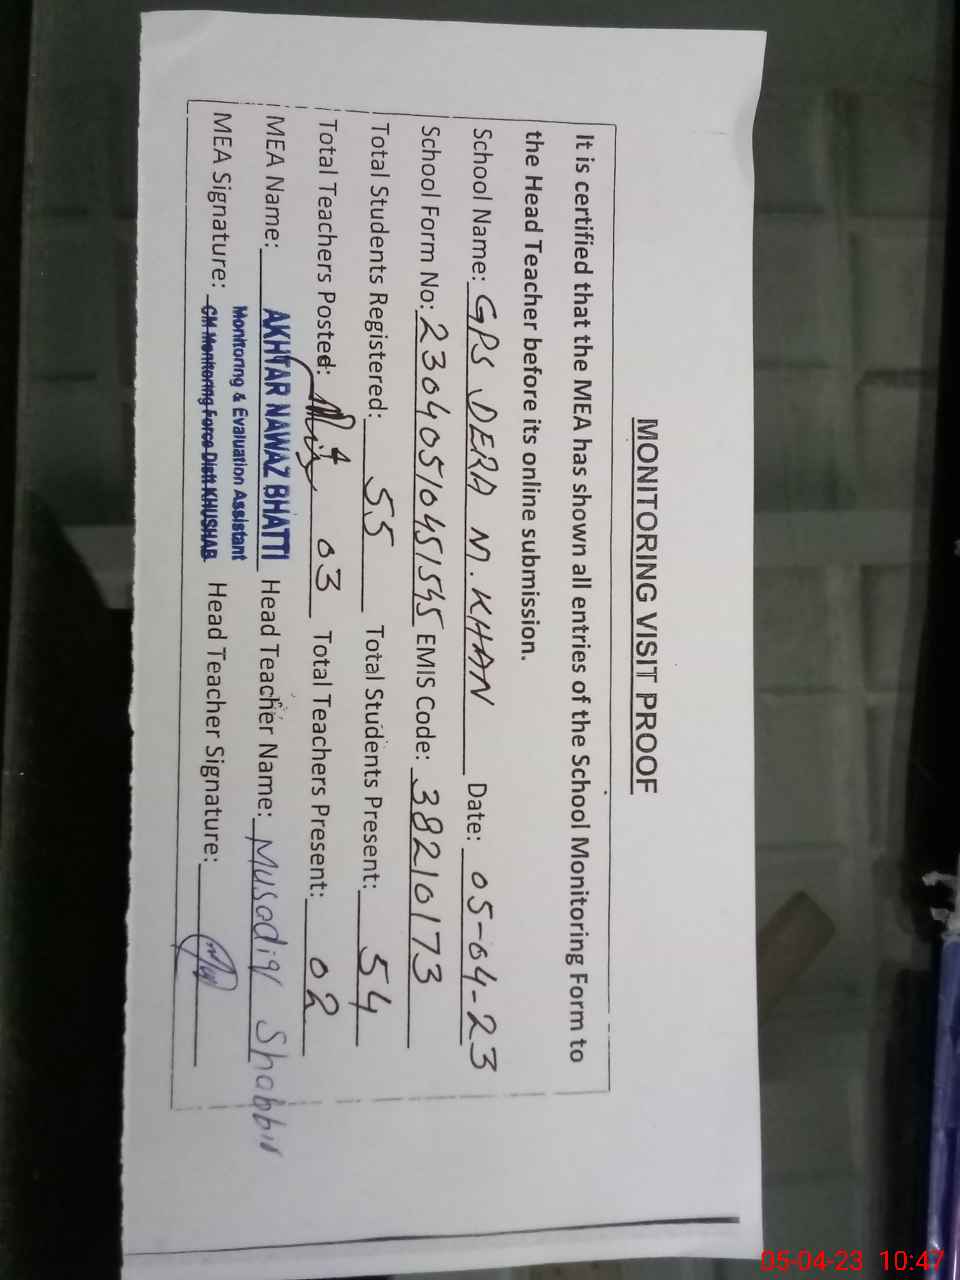 MONITORING VISIT PROOF
It is certified that the MEA has shown all entries of the School Monitoring Form to
the Head Teacher before its online submission.
School Name: GPS DERA M. KHAN Date: 05-04-23
School Form No: 23040510451545 EMIS Code: 38210173
Total Students Registered: 55 Total Students Present: 54
Total Teachers Posted: 03 Total Teachers Present: 02
MEA Name: AKHTAR NAWAZ BHATTI Head Teacher Name: Musadiq Shabbir
Monitoring & Evaluation Assistant
MEA Signature: CM Monitoring Force Distt KHUSHAB Head Teacher Signature:
05-04-23 10:47